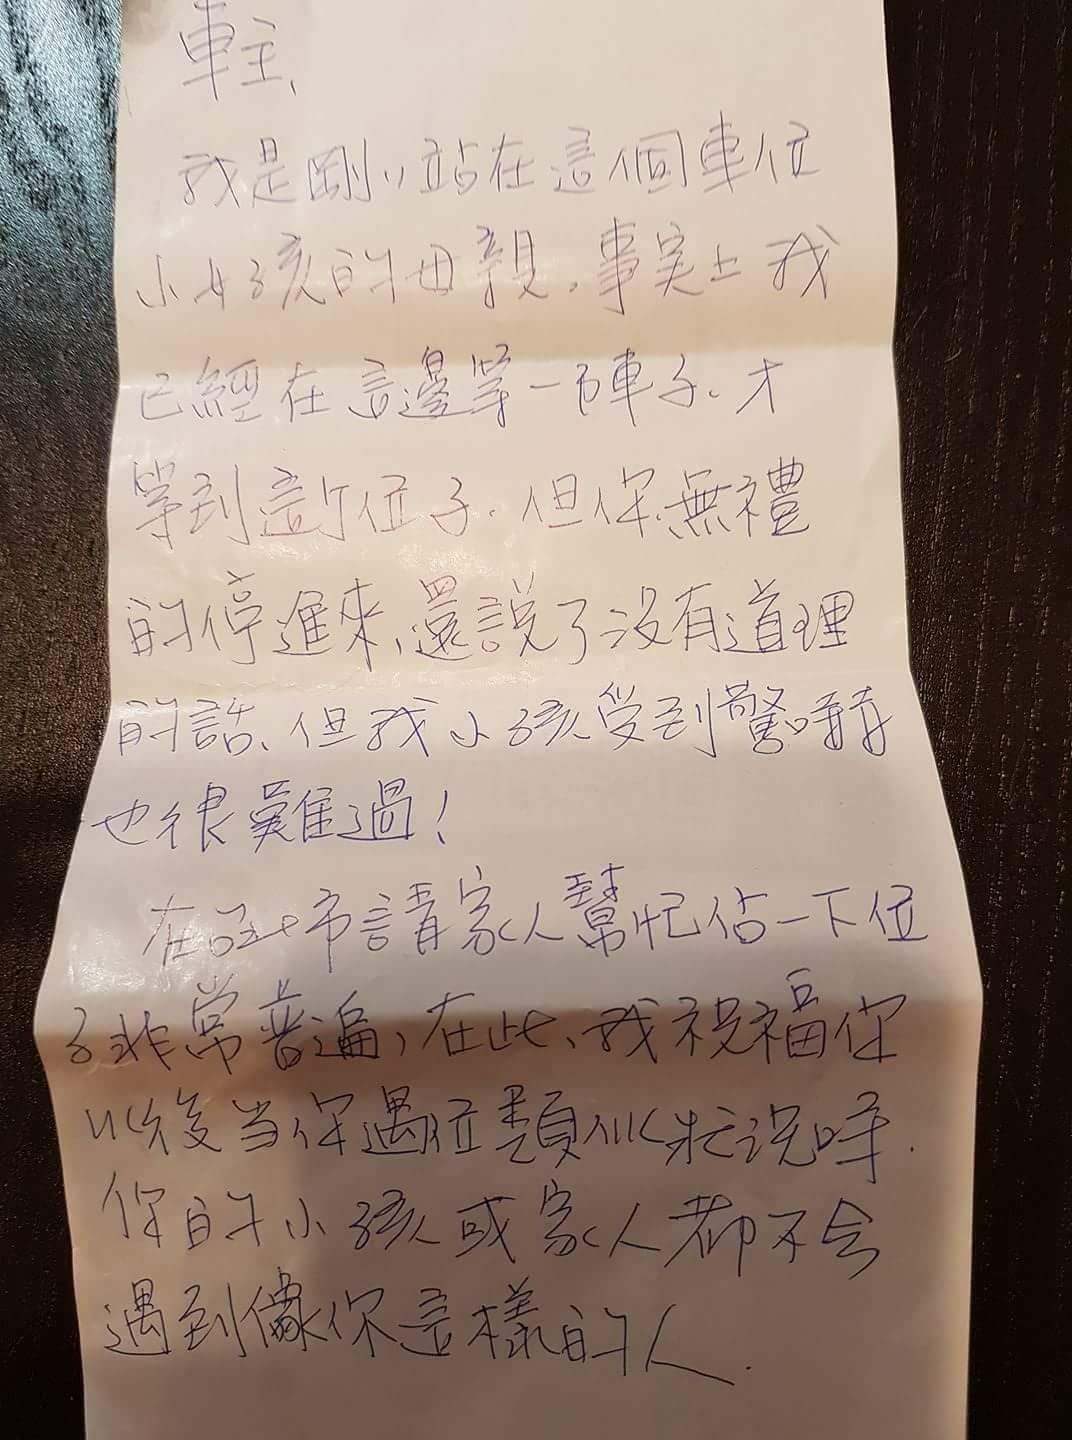 車主、
我是剛剛站在這個車位
小女孩的母親，事実上我
已經在這邊等一陣子、才
等到這个位子，但你無禮
的停進來，還説了沒有道理
的話，但我小孩受到驚嚇
也很難過！
在台北市請家人幫忙佔一下位
子非常普遍，在此、我祝福你
以後当你遇位類似狀況時．
你的小孩或家人都不会
遇到像你這樣的人．